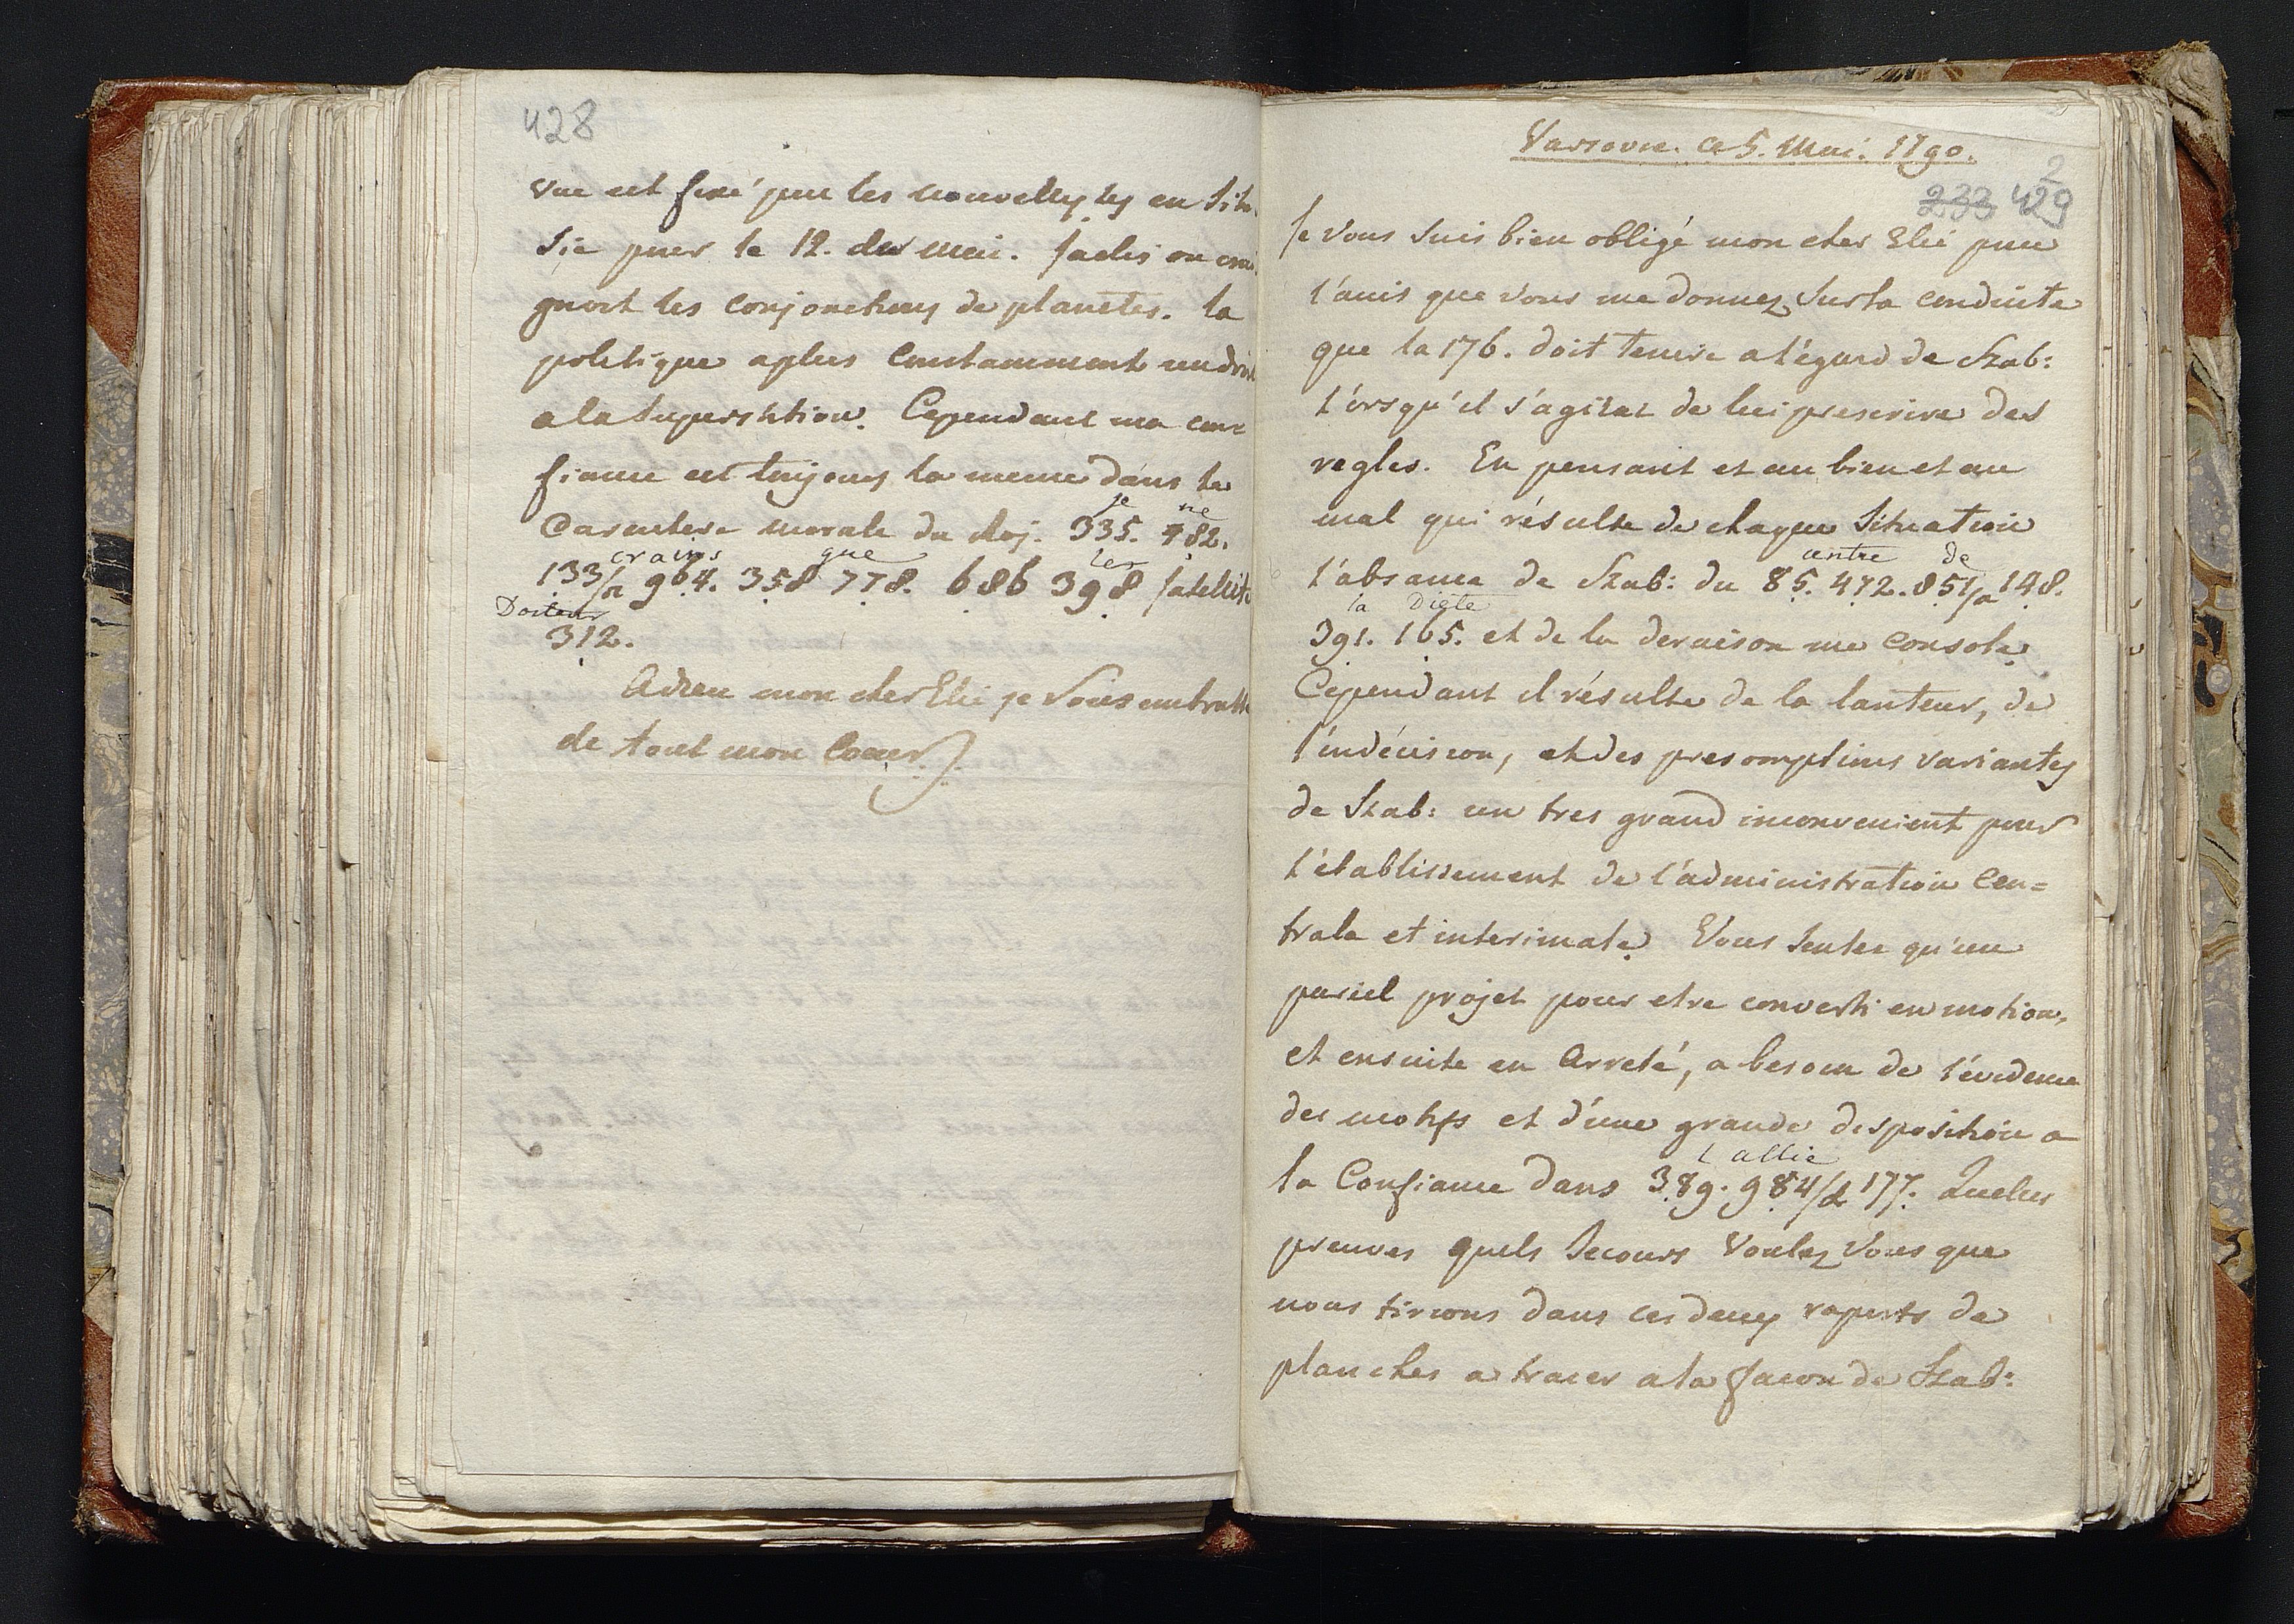 428
vue est fixé pour les nouvelles les en Sile
sie pour le 12. du Mai. Jadis on crai
gnoit les conjonctions de planetes. la
politique a plus constamment un droit
a la superstition. Cependant ma con=
fiance est toujours la meme dans le
Caractere morale du Roj. je ne 335. 482.
crains que les
133/n 964. 358 778. 686 398 satellite
Docteur
312.
Adieu mon cher Elie je vous embrasse
de tout mon Coeur
Varsovie. ce 5. Mai. 1790.
2
233 429
Je vous suis bien obligé mon cher Elie pour
l'avis que vous me donnez sur la conduite
que la 176. doit tenire a l'égard de Szab:
l'orsqu'il s'agirat de lui prescrire des
regles. En pensant et au bien et au
mal qui résulte de chaque Situation
antre de
l'absance de Szab: du 85. 472. 851/a 148.
la Diete
391. 165. et de la deraison me console.
Cependant il résulte de la lanteur, de
l'indécision, et des presomptions variantes
de Szab: un tres grand inconvenient pour
l'établissement de l'administration Cen=
trale et interimale. Vous sentez qu'un
pariel projet pour etre converti en motion,
et ensuite en Arreté, a besoin de l'évidence
des motifs et d'une grande disposition a
l allié
la Confiance dans 389. 984/d 177. Quelles
preuves quels Secours Voulez Vous que
nous tirions dans ces deux raports de
planches a tracer a la facon de Szab: